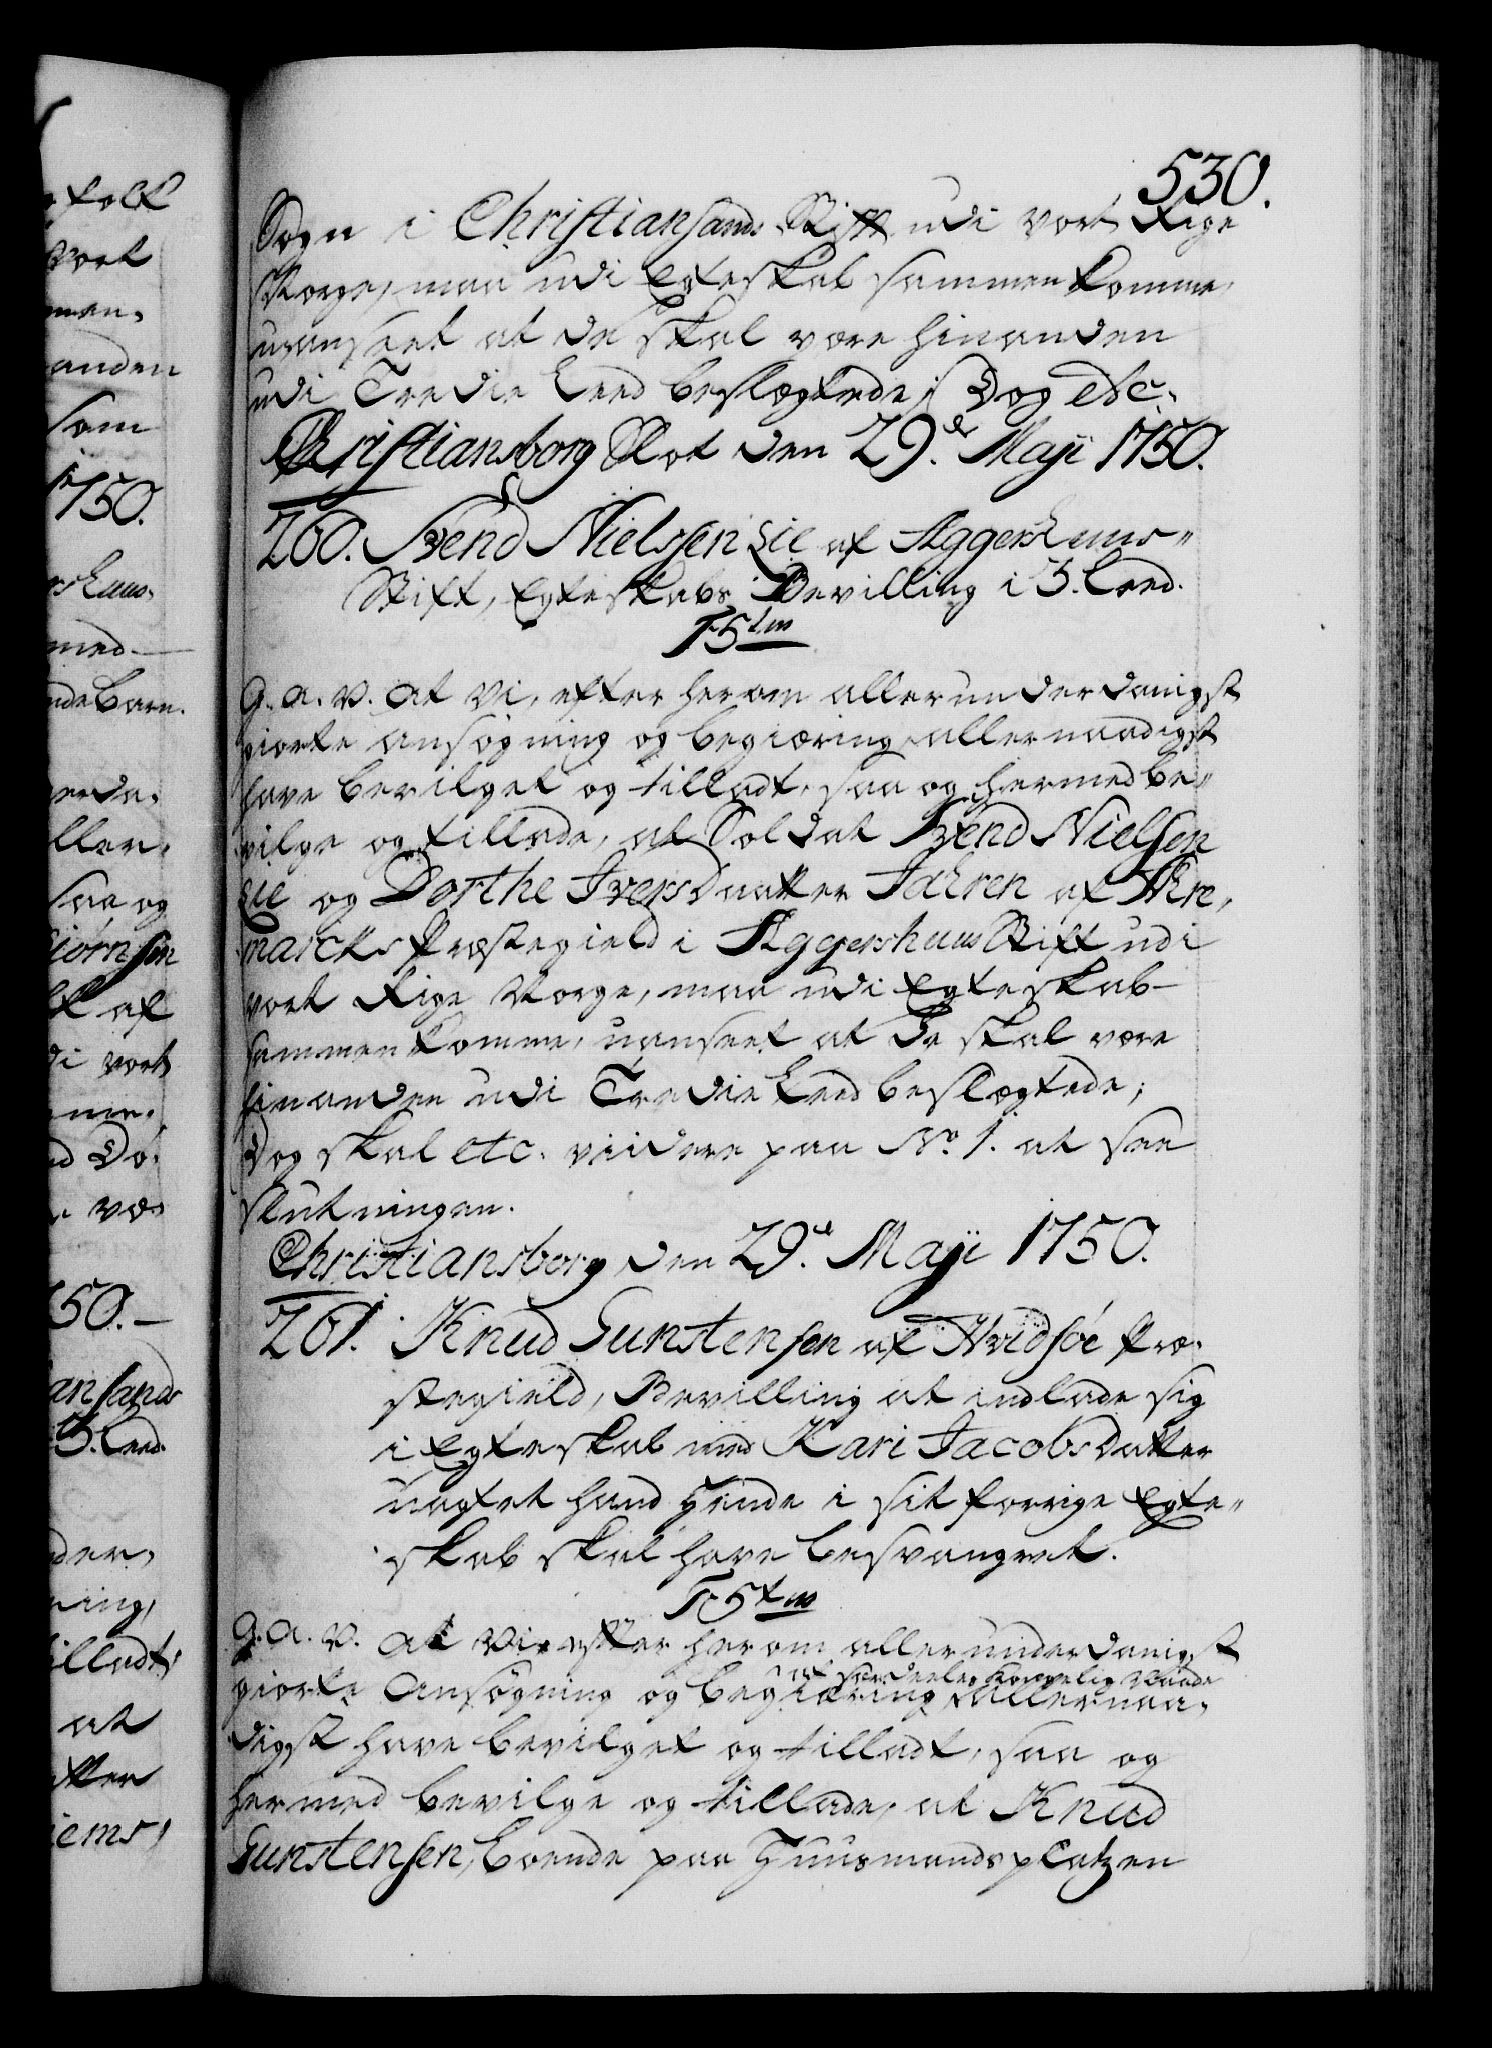 530.
Sogn i Christiansands Stift udi vort Rige
Norge, maa udi Egteskab sammenkomme,
uanseet at de skal være hinanden
udi Tredie Leed beslægtede; Dog etc.
Christiansborg Slot den 29de Maji 1750.
260. Svend Nielssen Lie af Aggershuus-
Stift, Egteskabs Bevilling i 3. Leed.
F 5tm
G. a. V. at vi, efter herom allerunderdanigst
giorte ansøgning og begiæring, allernaadigst
have bevilget og tilladt, saa og hermed be-
vilge og tillade, at Soldat Svend Nielsen
Lie og Dorthe Iversdaatter Jahren af Are,
marcks Præstegield i Aggershuus Stift udi
vort Rige Norge, maa udi Egteskab
sammenkomme, uanseet at de skal være
hinanden udi Tredie Leed beslægtede;
Dog skal etc. viidere paa No. 1. at see
slutningen.
Christiansborg den 29de Maji 1750.
261. Knud Gunstensen af Hvidsöe Præ-
stegield, Bevilling at indlade sig
i Egteskab med Kari Jacobsdatter
uagtet hand hende i sit forrige Egte-
skab skal have besvangret.
F 5tm
G. a. V. at vi, efter herom allerunderdanigst
af særdeeles Kongelig Naade
giorte Ansøgning og begiæring, allernaa,
digst have bevilget og tilladt, saa og
hermed bevilge og tillade, at Knud
Gunstensen, boende paa Huusmandspladzen